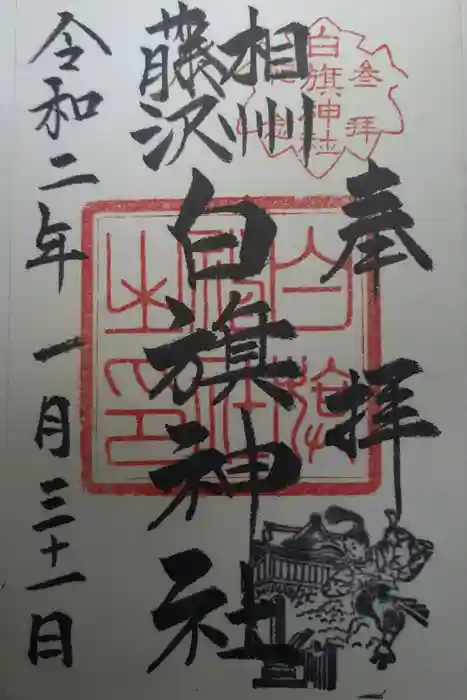 奉拝
相州
藤沢
白旗神社
令和二年一月三十一日
白旗神社
参拝
白旗神社之印